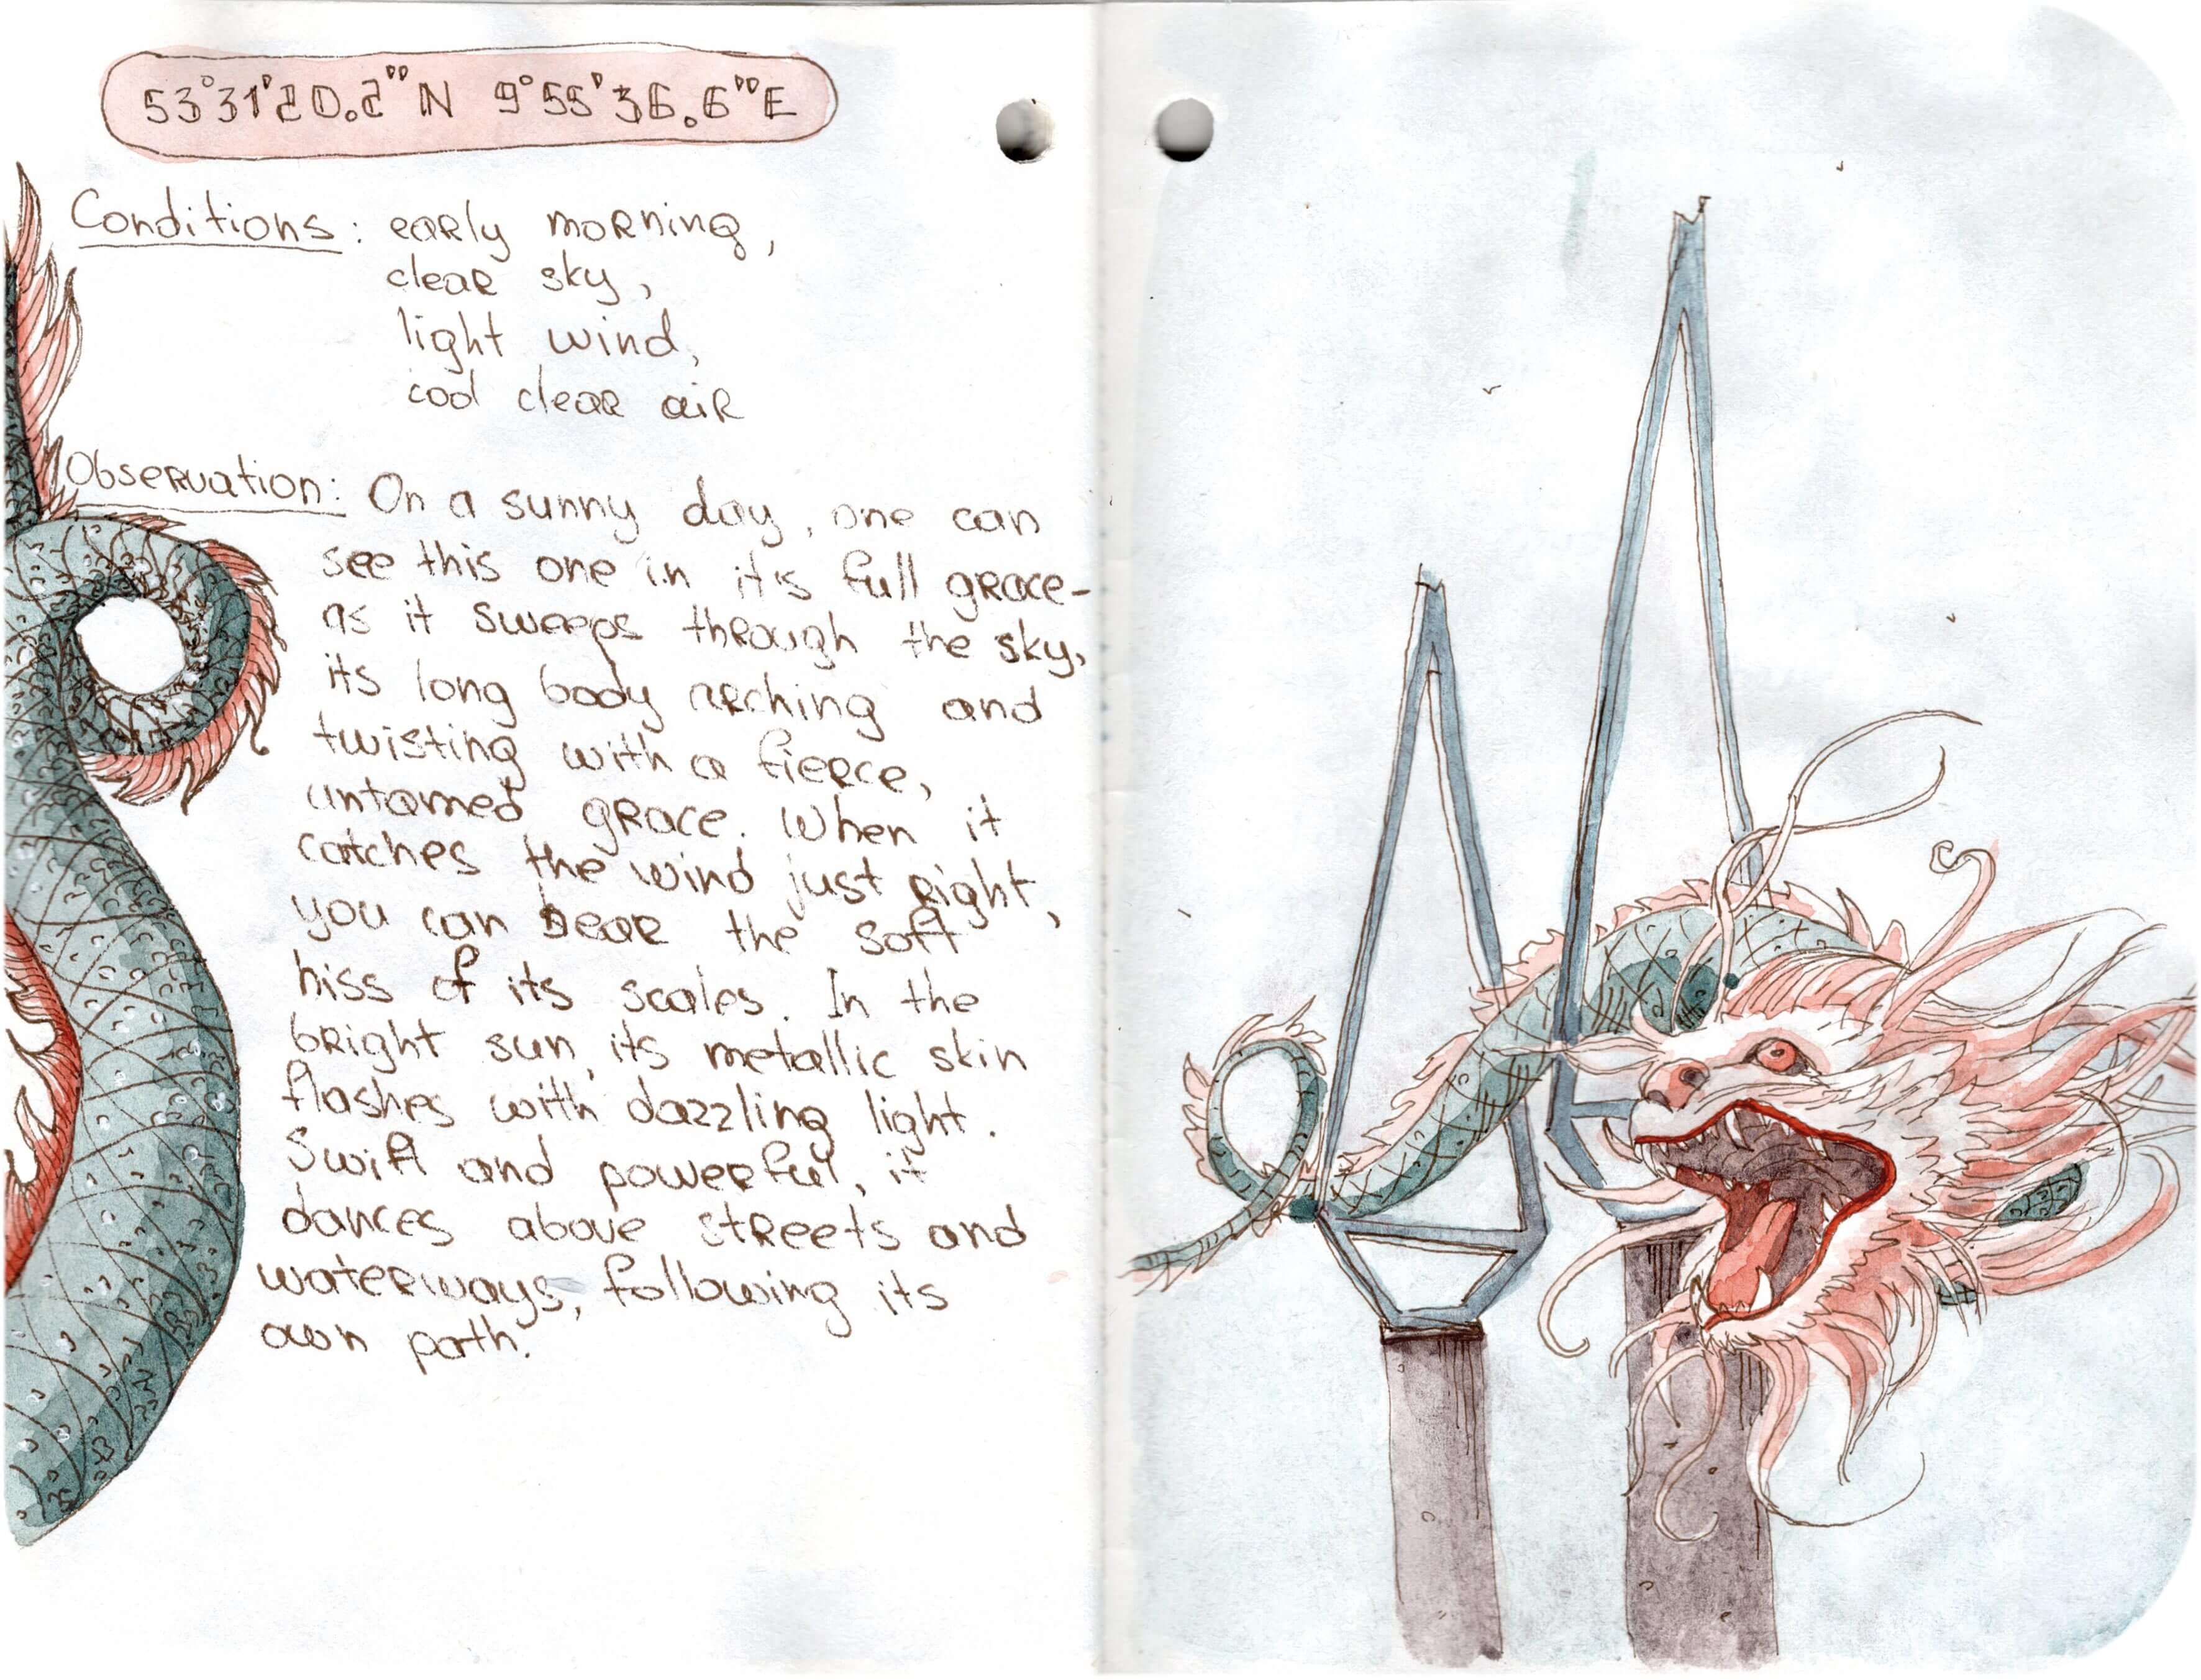 53°31'20.2"N 9°55'36.6"E
Conditions: early morning,
clear sky,
light wind,
cool clear air
Observation: On a sunny day, one can
see this one in it's full grace-
as it sweeps through the sky,
its long body arching and
twisting with a fierce,
untamed grace. When it
catches the wind just right,
you can hear the soft
hiss of its scales. In the
bright sun, its metallic skin
flashes with dazzling light.
Swift and powerful, it
dances above streets and
waterways, following its
own path.